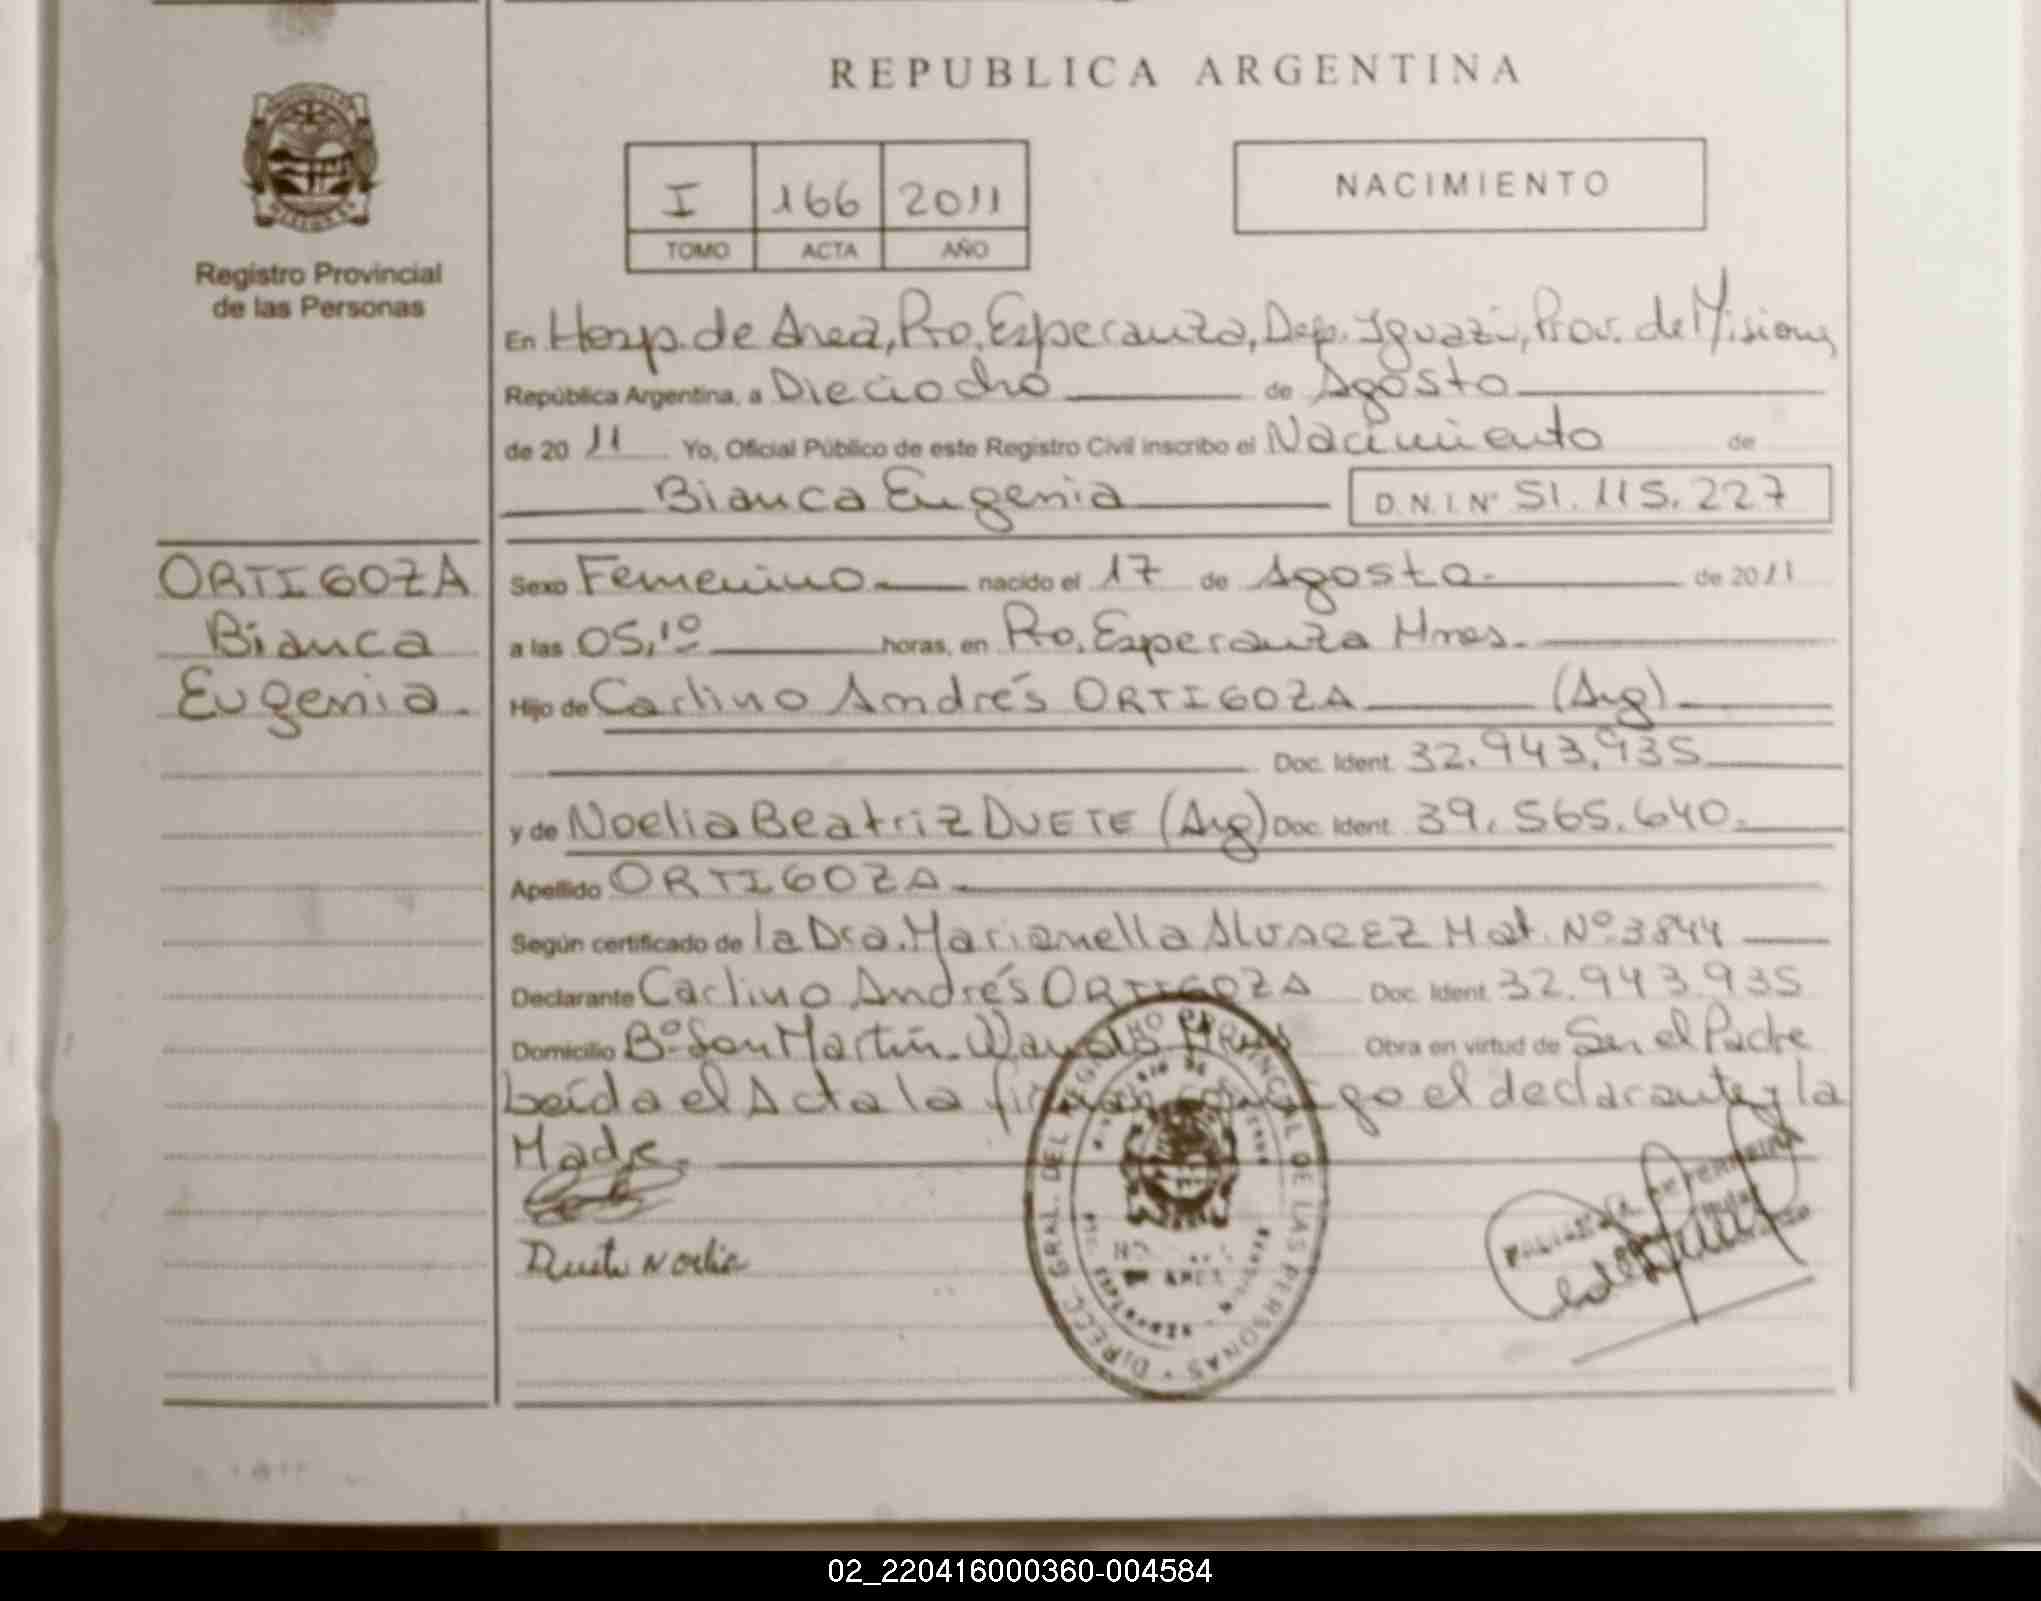 REPUBLICA ARGENTINA
I 166 2011
TOMO ACTA AÑO
NACIMIENTO
Registro Provincial
de las Personas
En Hosp. de Area, Pto. Esperanza, Dep. Iguazú, Prov. de Misiones
República Argentina, a Dieciocho de Agosto
de 2011 Yo, Oficial Público de este Registro Civil inscribo el Nacimiento de
Bianca Eugenia D.N.I. Nº 51.115.227
ORTIGOZA
Bianca
Eugenia.
Sexo Femenino nacido el 17 de Agosto. de 2011
a las 05,10 horas, en Pto. Esperanza Mnes.
Hijo de Carlino Andrés ORTIGOZA (Arg)
Doc. Ident. 32.943.935
y de Noelia Beatriz DUETE (Arg) Doc. Ident. 39.565.640.
Apellido ORTIGOZA.
Según certificado de la Dra. Marianella ALVAREZ Mat. Nº 3844
Declarante Carlino Andrés ORTIGOZA Doc. Ident. 32.943.935
Domicilio Bº San Martín. Wanda Mnes Obra en virtud de Ser el Padre
Leída el Acta la firman conmigo el declarante y la
Madre.
Duete Noelia
DIRECC. GRAL. DEL REGISTRO PROVINCIAL DE LAS PERSONAS
02_220416000360-004584